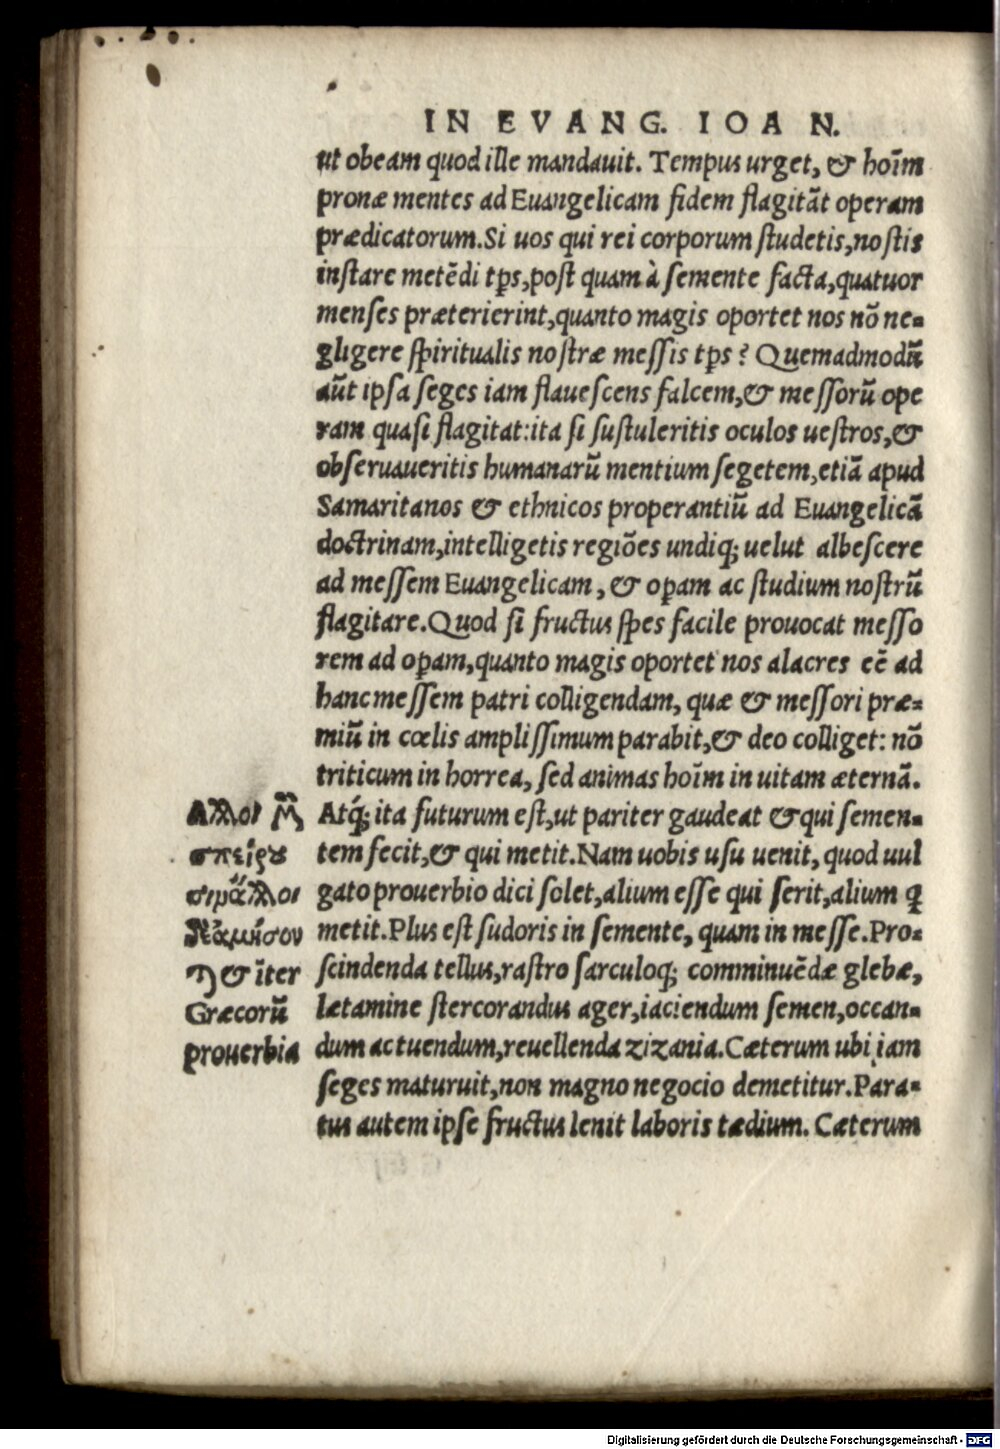 IN EVANG. IOAN.
ut obeam quod ille mandauit. Tempus urget, & hoīm
pronæ mentes ad Euangelicam fidem flagitāt operam
prædicatorum. Si uos qui rei corporum studetis, nostis
instare metēdi tp̄s, post quam à semente facta, quatuor
menses præterierint, quanto magis oportet nos nō ne-
gligere spiritualis nostræ messis tp̄s? Quemadmodū
aūt ipsa seges iam flauescens falcem, & messorū ope
ram quasi flagitat: ita si sustuleritis oculos uestros, &
obseruaueritis humanarū mentium segetem, etiā apud
Samaritanos & ethnicos properantiū ad Euangelicā
doctrinam, intelligetis regiōes undiq; uelut albescere
ad messem Euangelicam, & op̲am ac studium nostrū
flagitare. Quod si fructus spes facile prouocat messo
rem ad op̲am, quanto magis oportet nos alacres eē ad
hanc messem patri colligendam, quæ & messori præ-
miū in cœlis amplissimum parabit, & deo colliget: nō
triticum in horrea, sed animas hoīm in uitam æternā.
Atq́; ita futurum est, ut pariter gaudeat & qui semen-
tem fecit, & qui metit. Nam uobis usu uenit, quod uul
gato prouerbio dici solet, alium esse qui serit, alium q̲
metit. Plus est sudoris in semente, quam in messe. Pro-
scindenda tellus, rastro sarculoq; comminuēdæ glebæ,
lætamine stercorandus ager, iaciendum semen, occan-
dum ac tuendum, reuellenda zizania. Cæterum ubi iam
seges maturuit, non magno negocio demetitur. Para-
tus autem ipse fructus lenit laboris tædium. Cæterum
Ἄλλοι
& īter
Græcorū
prouerbia
Digitalisierung gefördert durch die Deutsche Forschungsgemeinschaft - DFG